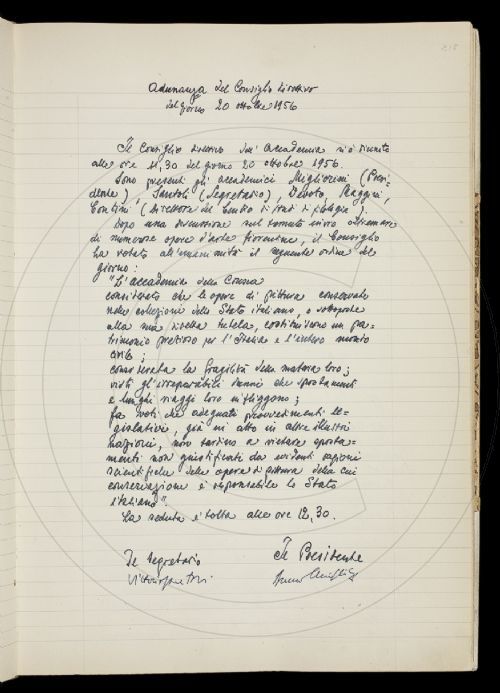 Adunanza del Consiglio direttivo
del giorno 20 ottobre 1956
Il Consiglio direttivo dell'Accademia si è riunito
alle ore 11,30 del giorno 20 ottobre 1956.
Sono presenti gli accademici Migliorini (Presi-
dente), Santoli (Segretario), Devoto, Raggini,
Contini (Direttore del Centro di studi di filologia);
Dopo una discussione sul ventilato invio oltremare
di numerose opere d'arte fiorentine, il Consiglio
ha votato all'unanimità il seguente ordine del
giorno:
"L'Accademia della Crusca
considerato che le opere di pittura conservate
nelle collezioni dello Stato italiano, o sottoposte
alla sua diretta tutela, costituiscono un pa-
trimonio prezioso per l'Italia e l'intero mondo
civile;
considerata la fragilità della materia loro;
visti gl'irreparabili danni che spostamenti
e lunghi viaggi loro infliggono;
fa voti che adeguati provvedimenti le-
gislativi, già in atto in altre illustri
nazioni, non tardino a vietare sposta-
menti non giustificati da evidenti ragioni
scientifiche delle opere di pittura della cui
conservazione è responsabile lo Stato
italiano".
La seduta è tolta alle ore 12,30.
Il Segretario Il Presidente
Vittorio Santoli Bruno Migliorini